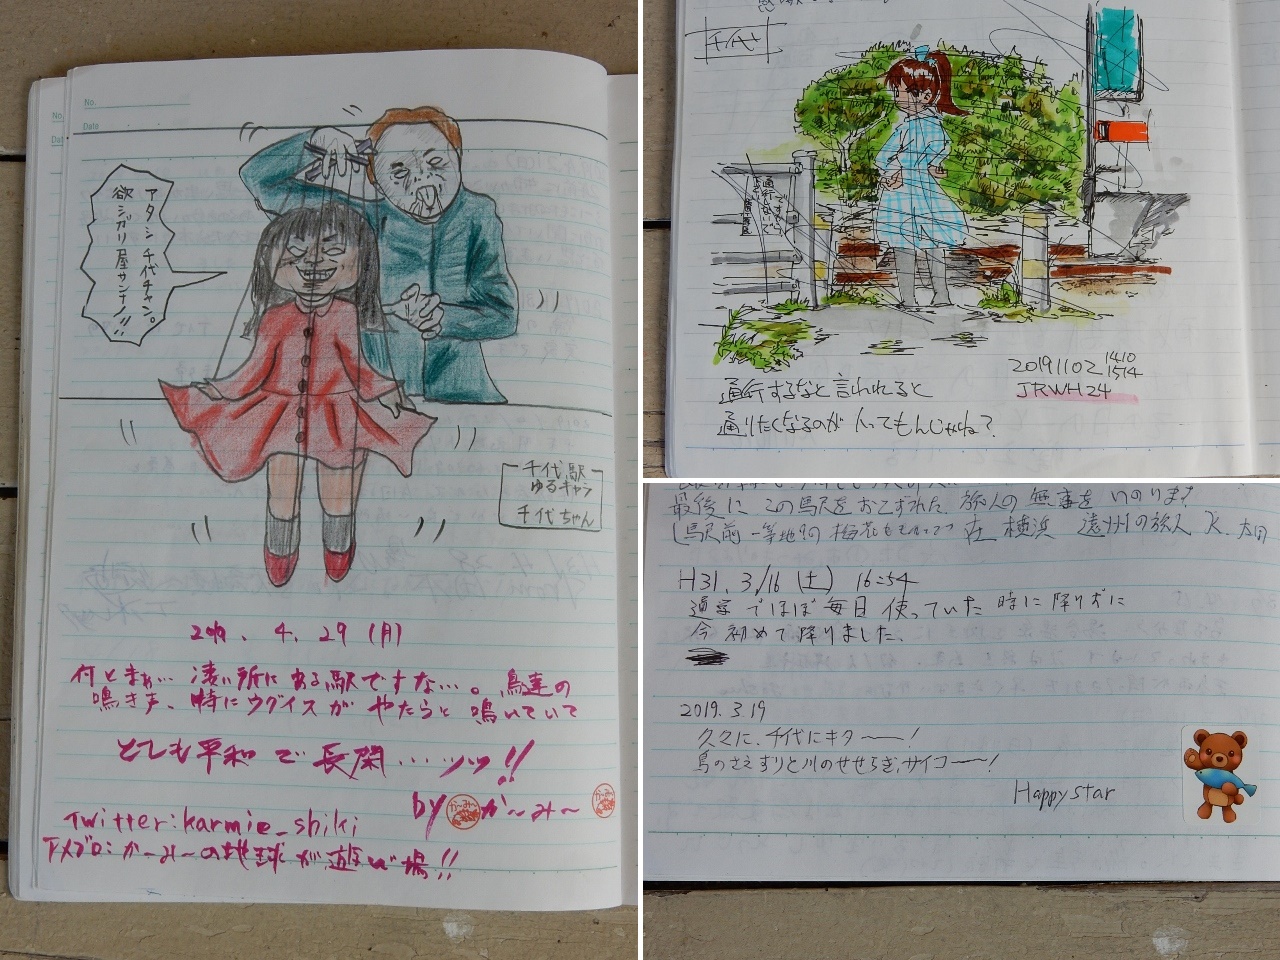 No.
Date
アタシ千代チャン。
欲シガリ屋サンナノ!!
千代駅
ゆるキャラ
千代ちゃん
2019. 4. 29 (月)
何とまぁ… 凄い所にある駅ですな…。鳥達の
鳴き声、特にウグイスが やたらと 鳴いていて
とても平和で長閑…ッッ!!
by か〜み〜
Twitter:karmie_shiki
アメブロ:か〜み〜の地球が遊び場!!
千代
20191102 1410
1514
JRWH24
通行するなと言われると
通りたくなるのが人ってもんじゃね?
最後に この駅をおとずれた 旅人の 無事を いのります
在 横浜 遠州の旅人 K. 太田
H31. 3/16 (土) 16:54
通学でほぼ毎日 使っていた 時に 降りずに
今 初めて 降りました。
2019. 3. 19
久々に、千代にキター!
鳥のさえずりと川のせせらぎ、サイコー!
Happy star